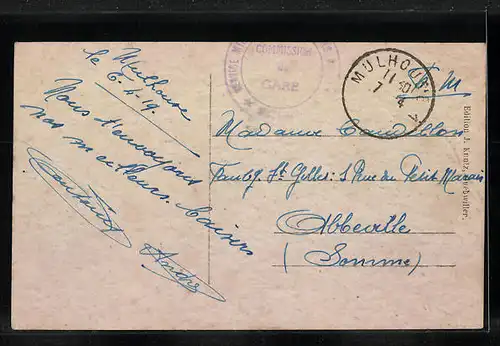 Mulhouse
le 6.4.19.
Nous t'envoyons
nos meilleurs baisers
COMMISSION
DE
GARE
MULHOUSE
11 30
7 4
F.M
Madame
Faubg St Gilles: 5 Rue du Petit Marais
Abbeville
(Somme)
Edition J. Kuntz,